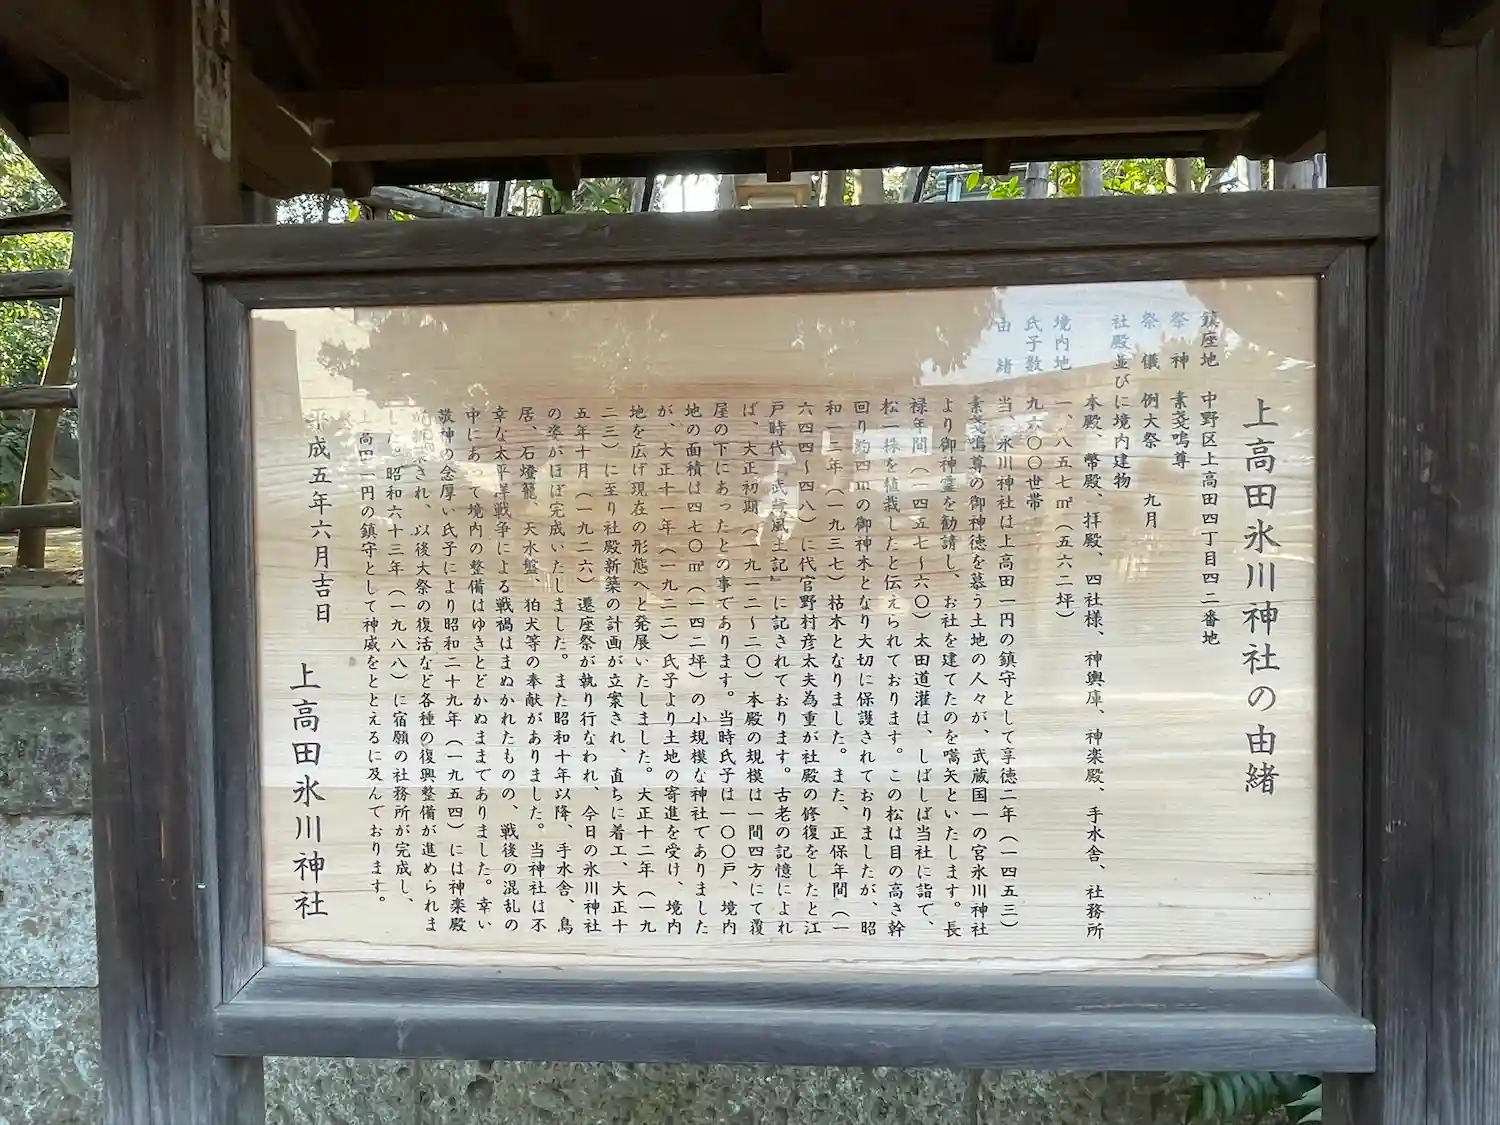 上高田氷川神社の由緒
鎮座地 中野区上高田四丁目四二番地
祭神 素戔嗚尊
祭儀 例大祭 九月
社殿並びに境内建物
本殿、幣殿、拝殿、四社様、神輿庫、神楽殿、手水舎、社務所
境内地 一、八五七㎡(五六二坪)
氏子数 九六〇〇世帯
由緒 当、氷川神社は上高田一円の鎮守として享徳二年(一四五三)
素戔嗚尊の御神徳を慕う土地の人々が、武蔵国一の宮氷川神社
より御神霊を勧請し、お社を建てたのを嚆矢といたします。長
禄年間(一四五七〜六〇)太田道灌は、しばしば当社に詣て、
松一株を植栽したと伝えられております。この松は目の高さ幹
回り約四mの御神木となり大切に保護されておりましたが、昭
和一二年(一九三七)枯木となりました。また、正保年間(一
六四四〜四八)に代官野村彦太夫為重が社殿の修復をしたと江
戸時代『武蔵風土記』に記されております。古老の記憶によれ
ば、大正初期(一九一二〜二〇)本殿の規模は一間四方にて覆
屋の下にあったとの事であります。当時氏子は一〇〇戸、境内
地の面積は四七〇㎡(一四二坪)の小規模な神社でありました
が、大正十一年(一九二二)氏子より土地の寄進を受け、境内
地を広げ現在の形態へと発展いたしました。大正十二年(一九
二三)に至り社殿新築の計画が立案され、直ちに着工、大正十
五年十月(一九二六)遷座祭が執り行なわれ、今日の氷川神社
の姿がほぼ完成いたしました。また昭和十年以降、手水舎、鳥
居、石燈籠、天水盤、狛犬等の奉献がありました。当神社は不
幸な太平洋戦争による戦禍はまぬかれたものの、戦後の混乱の
中にあって境内の整備はゆきとどかぬままでありました。幸い
敬神の念厚い氏子により昭和二十九年(一九五四)には神楽殿
され、以後大祭の復活など各種の復興整備が進められま
した。昭和六十三年(一九八八)に宿願の社務所が完成し、
上高田一円の鎮守として神威をととえるに及んでおります。
平成五年六月吉日
上高田氷川神社